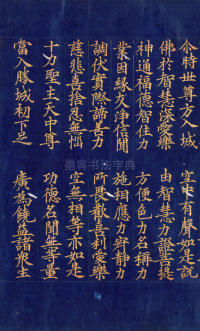 尒時世尊方入城　空中有聲如是説
佛於智慧深愛樂　由智慧力證菩提
神通福德智住力　方便色力名稱力
業因緣友淨信聞　施相應力寂靜力
調伏實際諦善力　歡喜利愛樂
慈悲喜捨忍無　空無相等亦如是
十力聖主天中尊　功德名聞無等量
當入勝城初下足　廣為饒益諸衆生
墨客书法字典